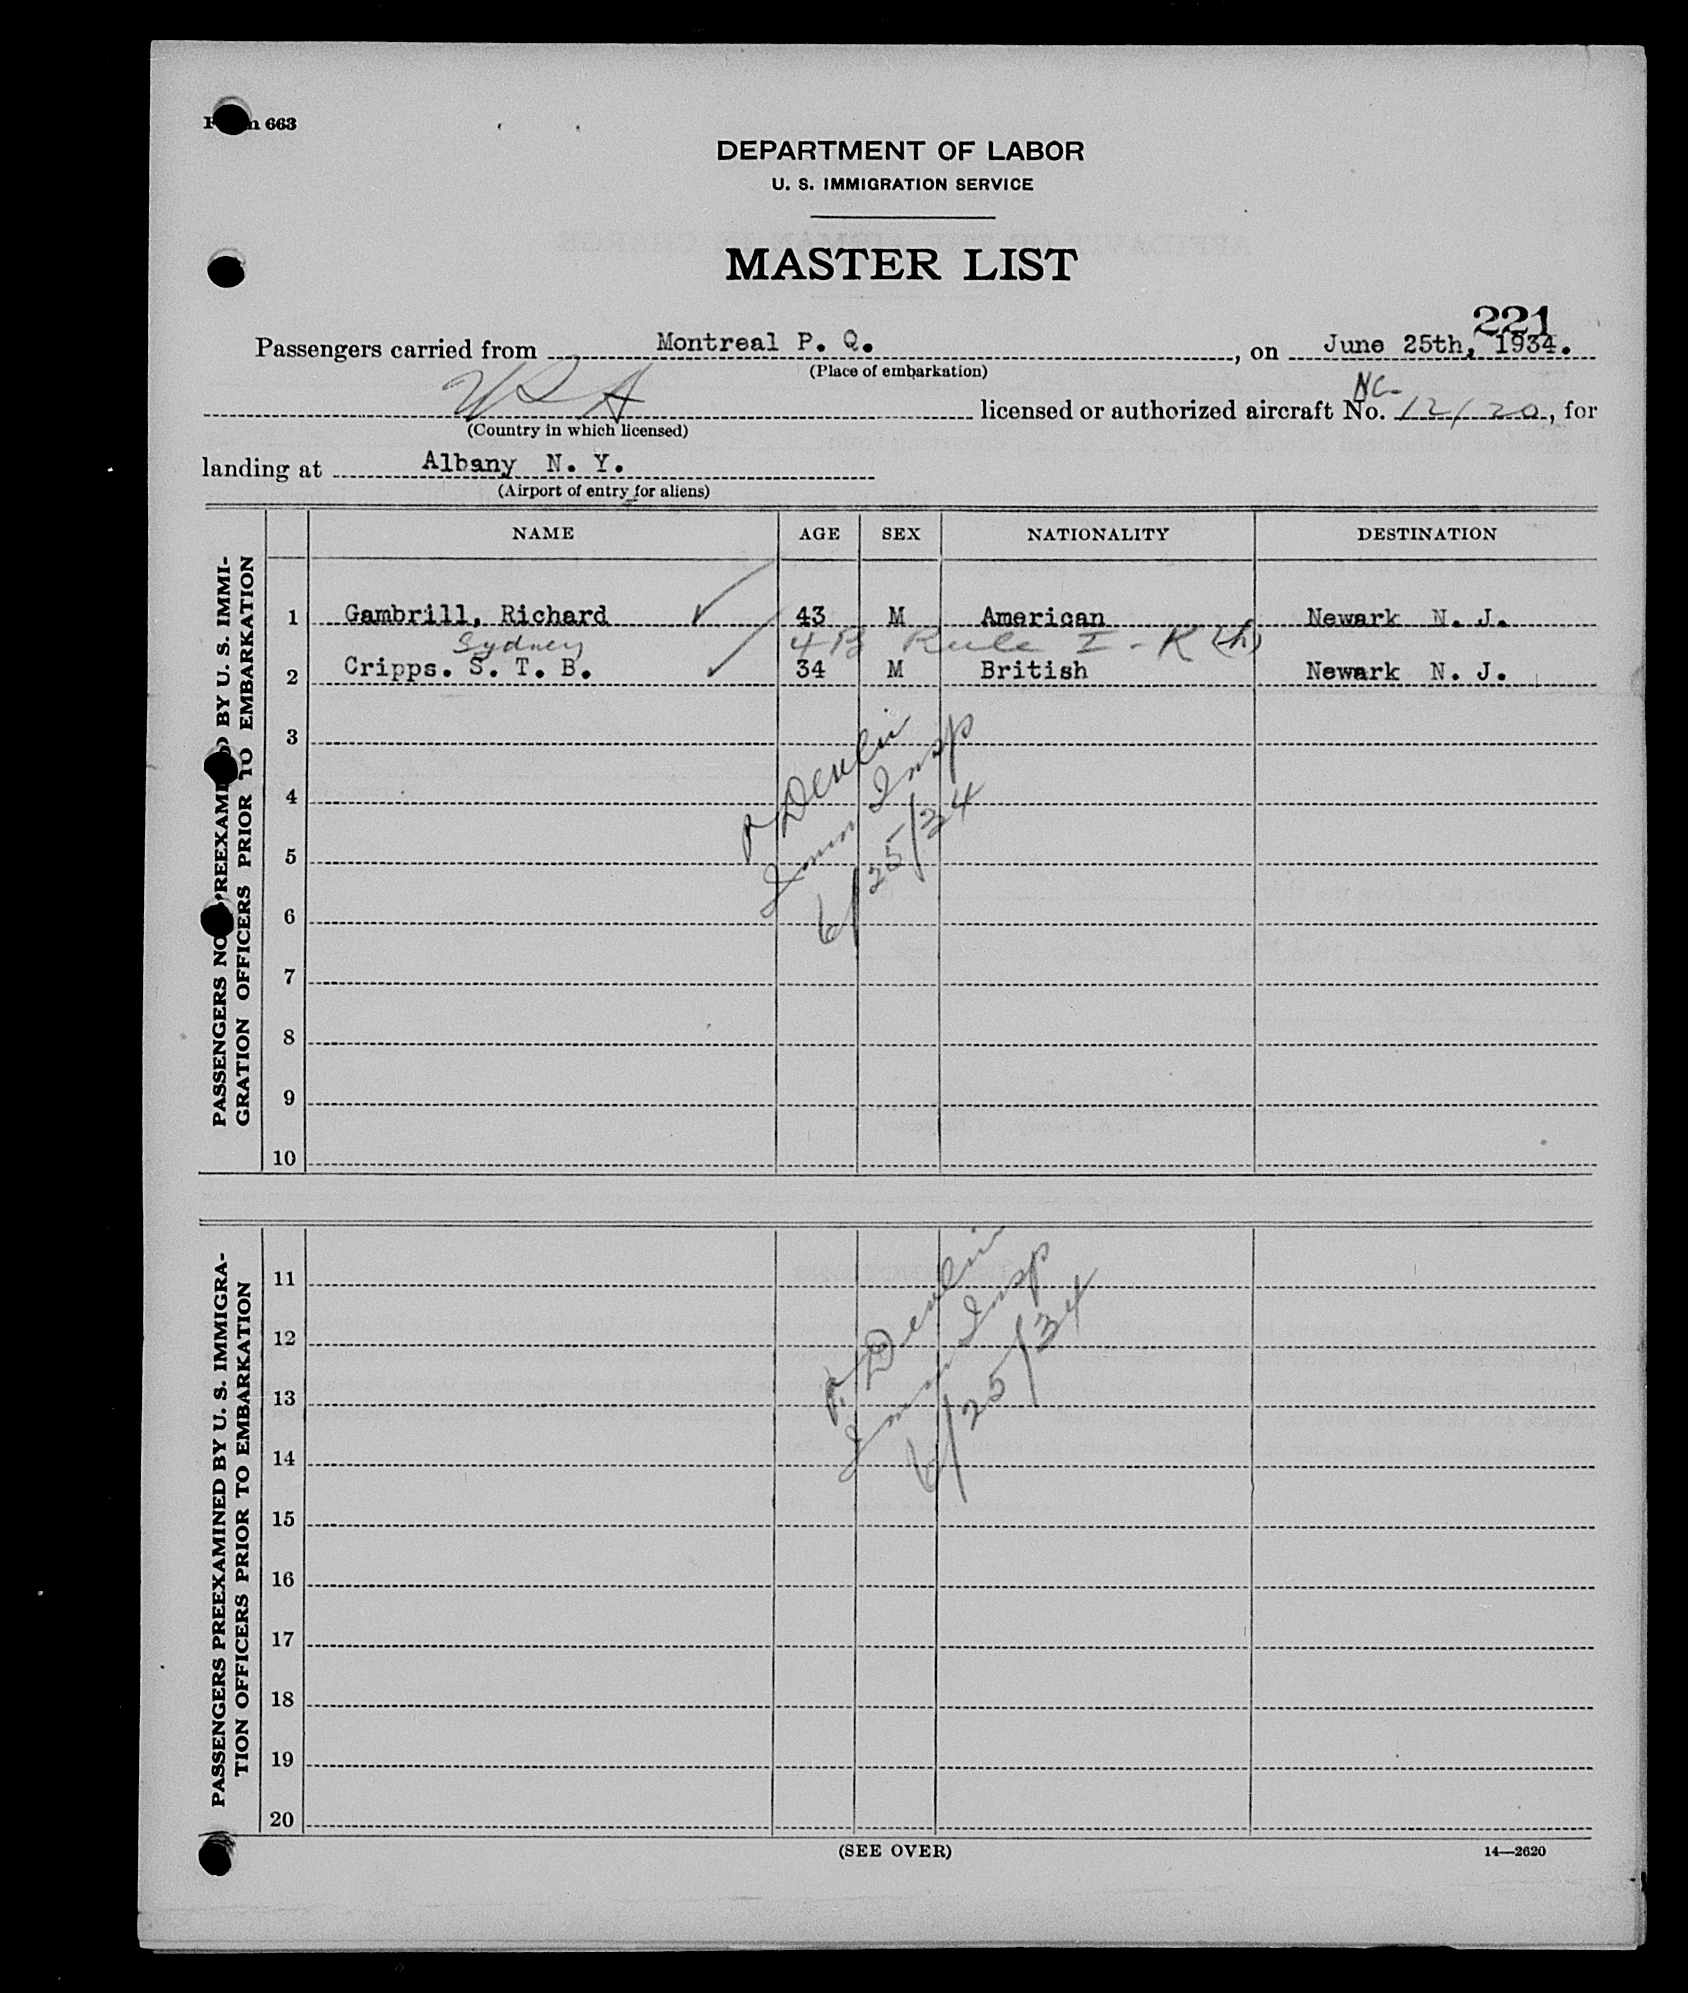 663
DEPARTMENT OF LABOR
U. S. IMMIGRATION SERVICE
MASTER LIST
221
Passengers carried from Montreal P. Q. , on June 25th, 1934.
(Place of embarkation)
USA NC-
licensed or authorized aircraft No. 12120, for
(Country in which licensed)
landing at Albany N. Y.
(Airport of entry for aliens)
PASSENGERS NOT PREEXAMINED BY U. S. IMMI-
GRATION OFFICERS PRIOR TO EMBARKATION
NAME AGE SEX NATIONALITY DESTINATION
1 Gambrill, Richard ✓ 43 M American Newark N. J.
Sydney 4B Rule I - K (h)
2 Cripps. S. T. B. ✓ 34 M British Newark N. J.
3
4
5
6
7
8
9
10
P Devlin
Imm Insp
6/25/34
PASSENGERS PREEXAMINED BY U. S. IMMIGRA-
TION OFFICERS PRIOR TO EMBARKATION
11
12
13
14
15
16
17
18
19
20
P. Devlin
Imm Insp
6/25/34
(SEE OVER)
14—2620